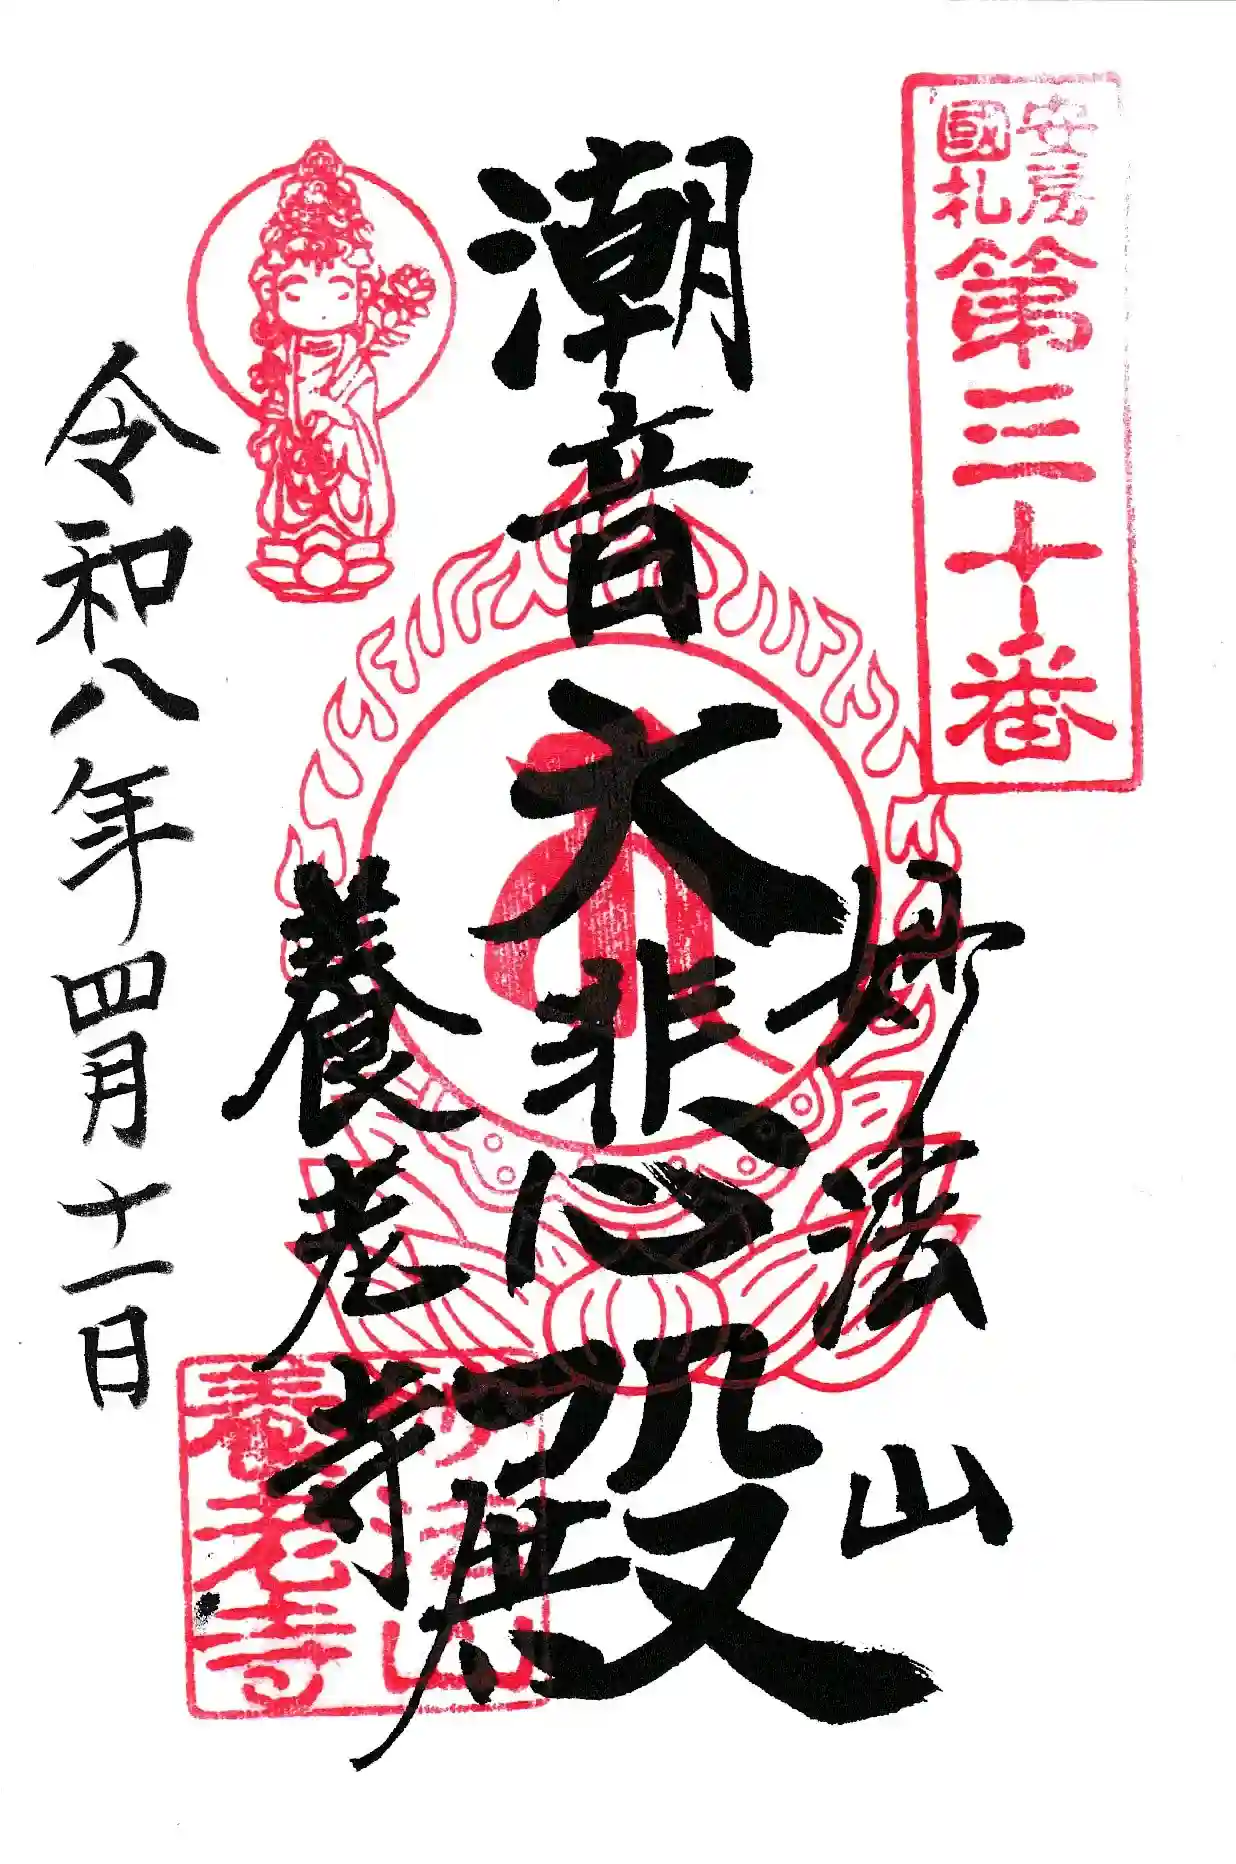 安房
國札
第三十番
妙法山
潮音大悲殿
養老寺
令和八年四月十一日
妙法山
養老寺